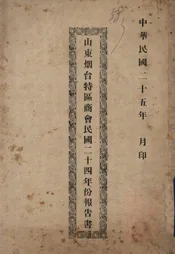 中華民國二十五年　月印
山東烟台特區商會民國二十四年份報告書